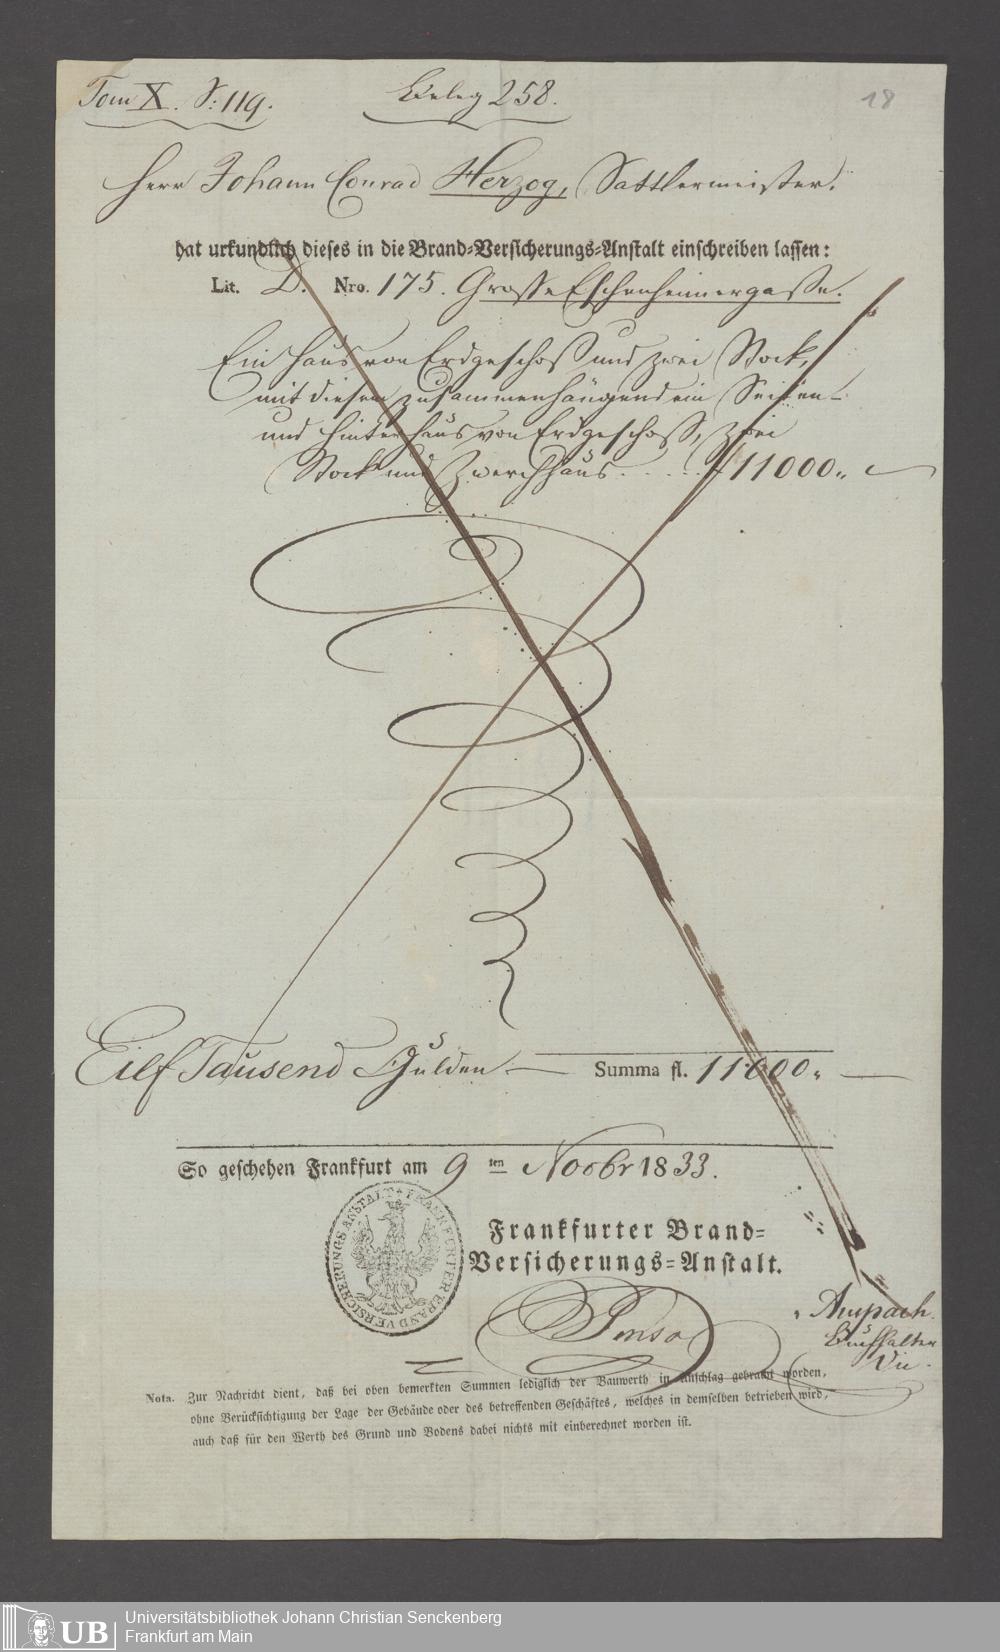 Tom X. S: 119.
Beleg 258.
18
Herr Johann Conrad Herzog, Sattlermeister.
hat urkundlich dieses in die Brand-Versicherungs-Anstalt einschreiben lassen:
Lit. D. Nro. 175. Grosse Eschenheimergasse.
Ein Haus von Erdgeschoß und zwei Stock,
mit diesem zusammenhängend ein Seiten-
und Hinterhaus von Erdgeschoß, zwei
Stock und Zwerchhaus . . . . f 11000.
Eilf Tausend Gulden. Summa fl. 11000.
So geschehen Frankfurt am 9 ten Novbr 1833.
FRANKFURTER BRAND VERSICHERUNGS ANSTALT
Frankfurter Brand-
Versicherungs-Anstalt.
Anspach.
Buchhalter
Nota. Zur Nachricht dient, daß bei oben bemerkten Summen lediglich der Bauwerth in Anschlag gebracht worden,
ohne Berücksichtigung der Lage der Gebäude oder des betreffenden Geschäftes, welches in demselben betrieben wird,
auch daß für den Werth des Grund und Bodens dabei nichts mit einberechnet worden ist.
UB
Universitätsbibliothek Johann Christian Senckenberg
Frankfurt am Main